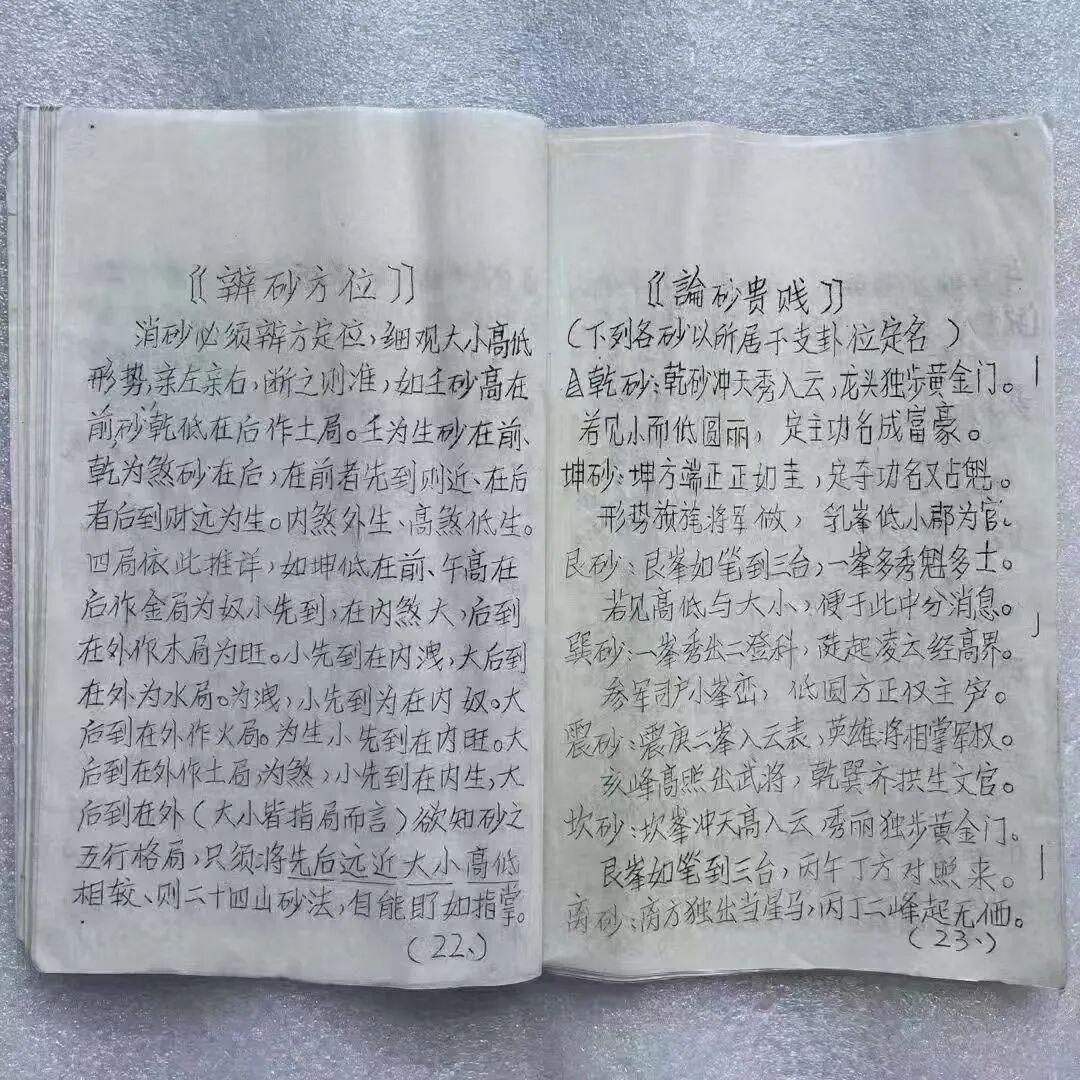 〖辨砂方位〗
消砂必须辨方定位，细观大小高低
形势，亲左亲右，断之则准，如壬砂高在
前，砂乾低在后作土局。壬为生砂在前、
乾为煞砂在后，在前者先到则近、在后
者后到财远为生。内煞外生、高煞低生。
四局依此推详，如坤低在前、午高在
后作金局为奴小先到，在内煞大，后到
在外作木局为旺。小先到在内洩，大后到
在外为水局。为洩，小先到为在内奴。大
后到在外作火局。为生小先到在内旺。大
后到在外作土局，为煞，小先到在内生，大
后到在外（大小皆指局而言）欲知砂之
五行格局，只须将先后远近大小高低
相较、则二十四山砂法，自能明如指掌。
(22、)
〖論砂贵贱〗
（下列各砂以所居干支卦位定名）
乾砂：乾砂冲天秀入云，龙头独步黄金门。
若见小而低圆丽，定主功名成富豪。
坤砂：坤方端正正如圭，定夺功名又占魁。
形势旗旄将军做，乳峯低小郡为官、
艮砂：艮峯如笔到三台，一峯多秀魁多士。
若见高低与大小，便于此中分消息。
巽砂：一峯秀出二登科，陡起凌云经高界。
参军司户小峯峦，低圆方正仅主岁。
震砂：震庚二峯入云表，英雄将相掌军权。
亥峰高照出武将，乾巽齐拱生文官。
坎砂：坎峯冲天高入云 秀丽独步黄金门。
艮峯如笔到三台，丙午丁方对照来。
离砂：离方独出当星马，丙丁二峰起无価。
(23、)